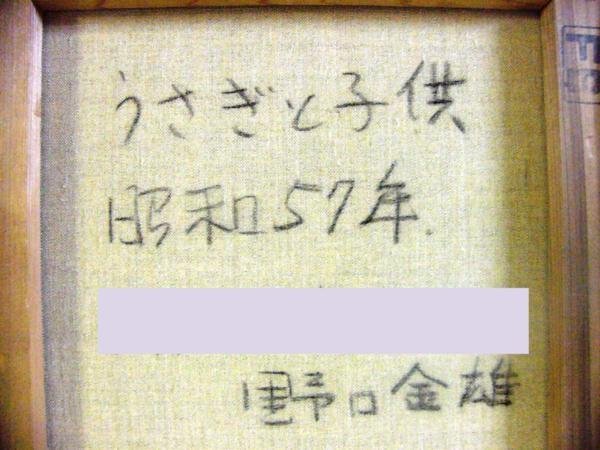 うさぎと子供
昭和57年.
野口金雄